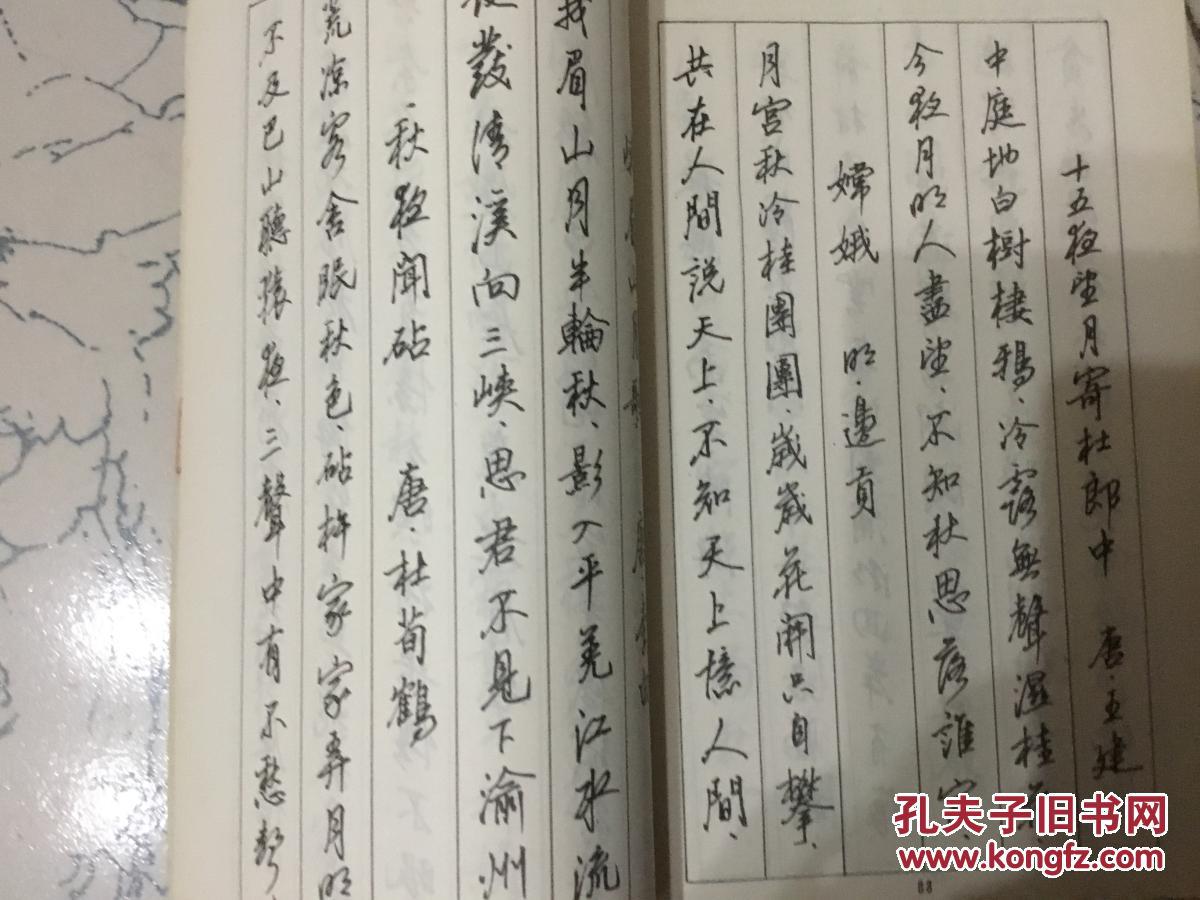 十五夜望月寄杜郎中　唐·王建
中庭地白樹棲鴉、冷露無聲濕桂花、
今夜月明人盡望、不知秋思落誰家、
嫦娥　明·邊貢
月宮秋冷桂團團、歲歲花開只自攀、
共在人間説天上、不知天上憶人間、
峨眉山月半輪秋、影入平羌江水流
夜發清溪向三峽、思君不見下渝州
秋夜聞砧　唐·杜荀鶴
荒涼客舍眠秋色、砧杵家家弄月明
不及巴山聽猿夜、三聲中有不愁聲、
88
孔夫子旧书网
www.kongfz.com